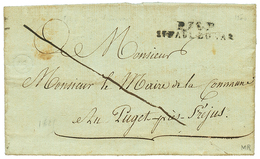 P.78.P.
Monsieur
Monsieur le Maire de la Commune
Au Puget-près Fréjus.